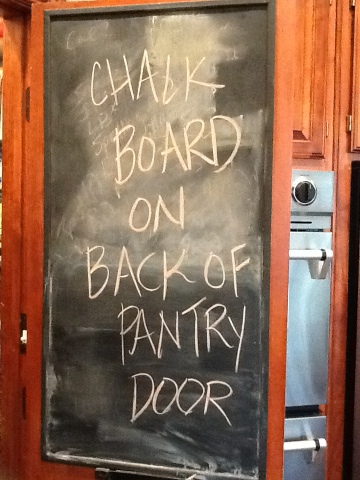 CHALK
BOARD
ON
BACK OF
PANTRY
DOOR